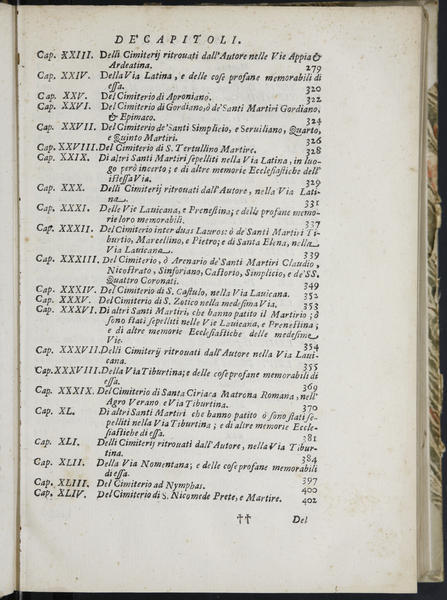 DE CAPITOLI.
Cap. XXIII. Delli Cimiterij ritrouati dall'Autore nelle Vie Appia &
Ardeatina. 279
Cap. XXIV. Della Via Latina, e delle cose profane memorabili di
essa. 320
Cap. XXV. Del Cimiterio di Aproniano. 322
Cap. XXVI. Del Cimiterio di Gordiano, ò de' Santi Martiri Gordiano,
& Epimaco. 324
Cap. XXVII. Del Cimiterio de' Santi Simplicio, e Seruiliano, Quarto,
e Quinto Martiri. 326
Cap. XXVIII. Del Cimiterio di S. Tertullino Martire. 328
Cap. XXIX. Di altri Santi Martiri sepelliti nella Via Latina, in luo-
go però incerto; e di altre memorie Ecclesiastiche dell'
istessa Via. 329
Cap. XXX. Delli Cimiterij ritrouati dall'Autore, nella Via Lati-
na. 331
Cap. XXXI. Delle Vie Lauicana, e Prenestina; e delle profane memo-
rie loro memorabili. 337
Cap. XXXII. Del Cimiterio inter duas Lauros: ò de' Santi Martiri Ti-
burtio, Marcellino, e Pietro; e di Santa Elena, nella
Via Lauicana. 339
Cap. XXXIII. Del Cimiterio, ò Arenario de' Santi Martiri Claudio,
Nicostrato, Sinforiano, Castorio, Simplicio, e de' SS.
Quattro Coronati. 349
Cap. XXXIV. Del Cimiterio di S. Castulo, nella Via Lauicana. 352
Cap. XXXV. Del Cimiterio di S. Zotico nella medesima Via. 353
Cap. XXXVI. Di altri Santi Martiri, che hanno patito il Martirio; ò
sono stati sepelliti nelle Vie Lauicana, e Prenestina;
e di altre memorie Ecclesiastiche delle medesime
Vie. 354
Cap. XXXVII. Delli Cimiterij ritrouati dall'Autore nella Via Laui-
cana. 355
Cap. XXXVIII. Della Via Tiburtina; e delle cose profane memorabili di
essa. 369
Cap. XXXIX. Del Cimiterio di Santa Ciriaca Matrona Romana, nell'
Agro Verano e Via Tiburtina. 370
Cap. XL. Di altri Santi Martiri che hanno patito ò sono stati se-
pelliti nella Via Tiburtina; e di altre memorie Eccle-
siastiche di essa. 381
Cap. XLI. Delli Cimiterij ritrouati dall'Autore, nella Via Tibur-
tina. 384
Cap. XLII. Della Via Nomentana; e delle cose profane memorabili
di essa. 397
Cap. XLIII. Del Cimiterio ad Nymphas. 400
Cap. XLIV. Del Cimiterio di S. Nicomede Prete, e Martire. 402
†† Del